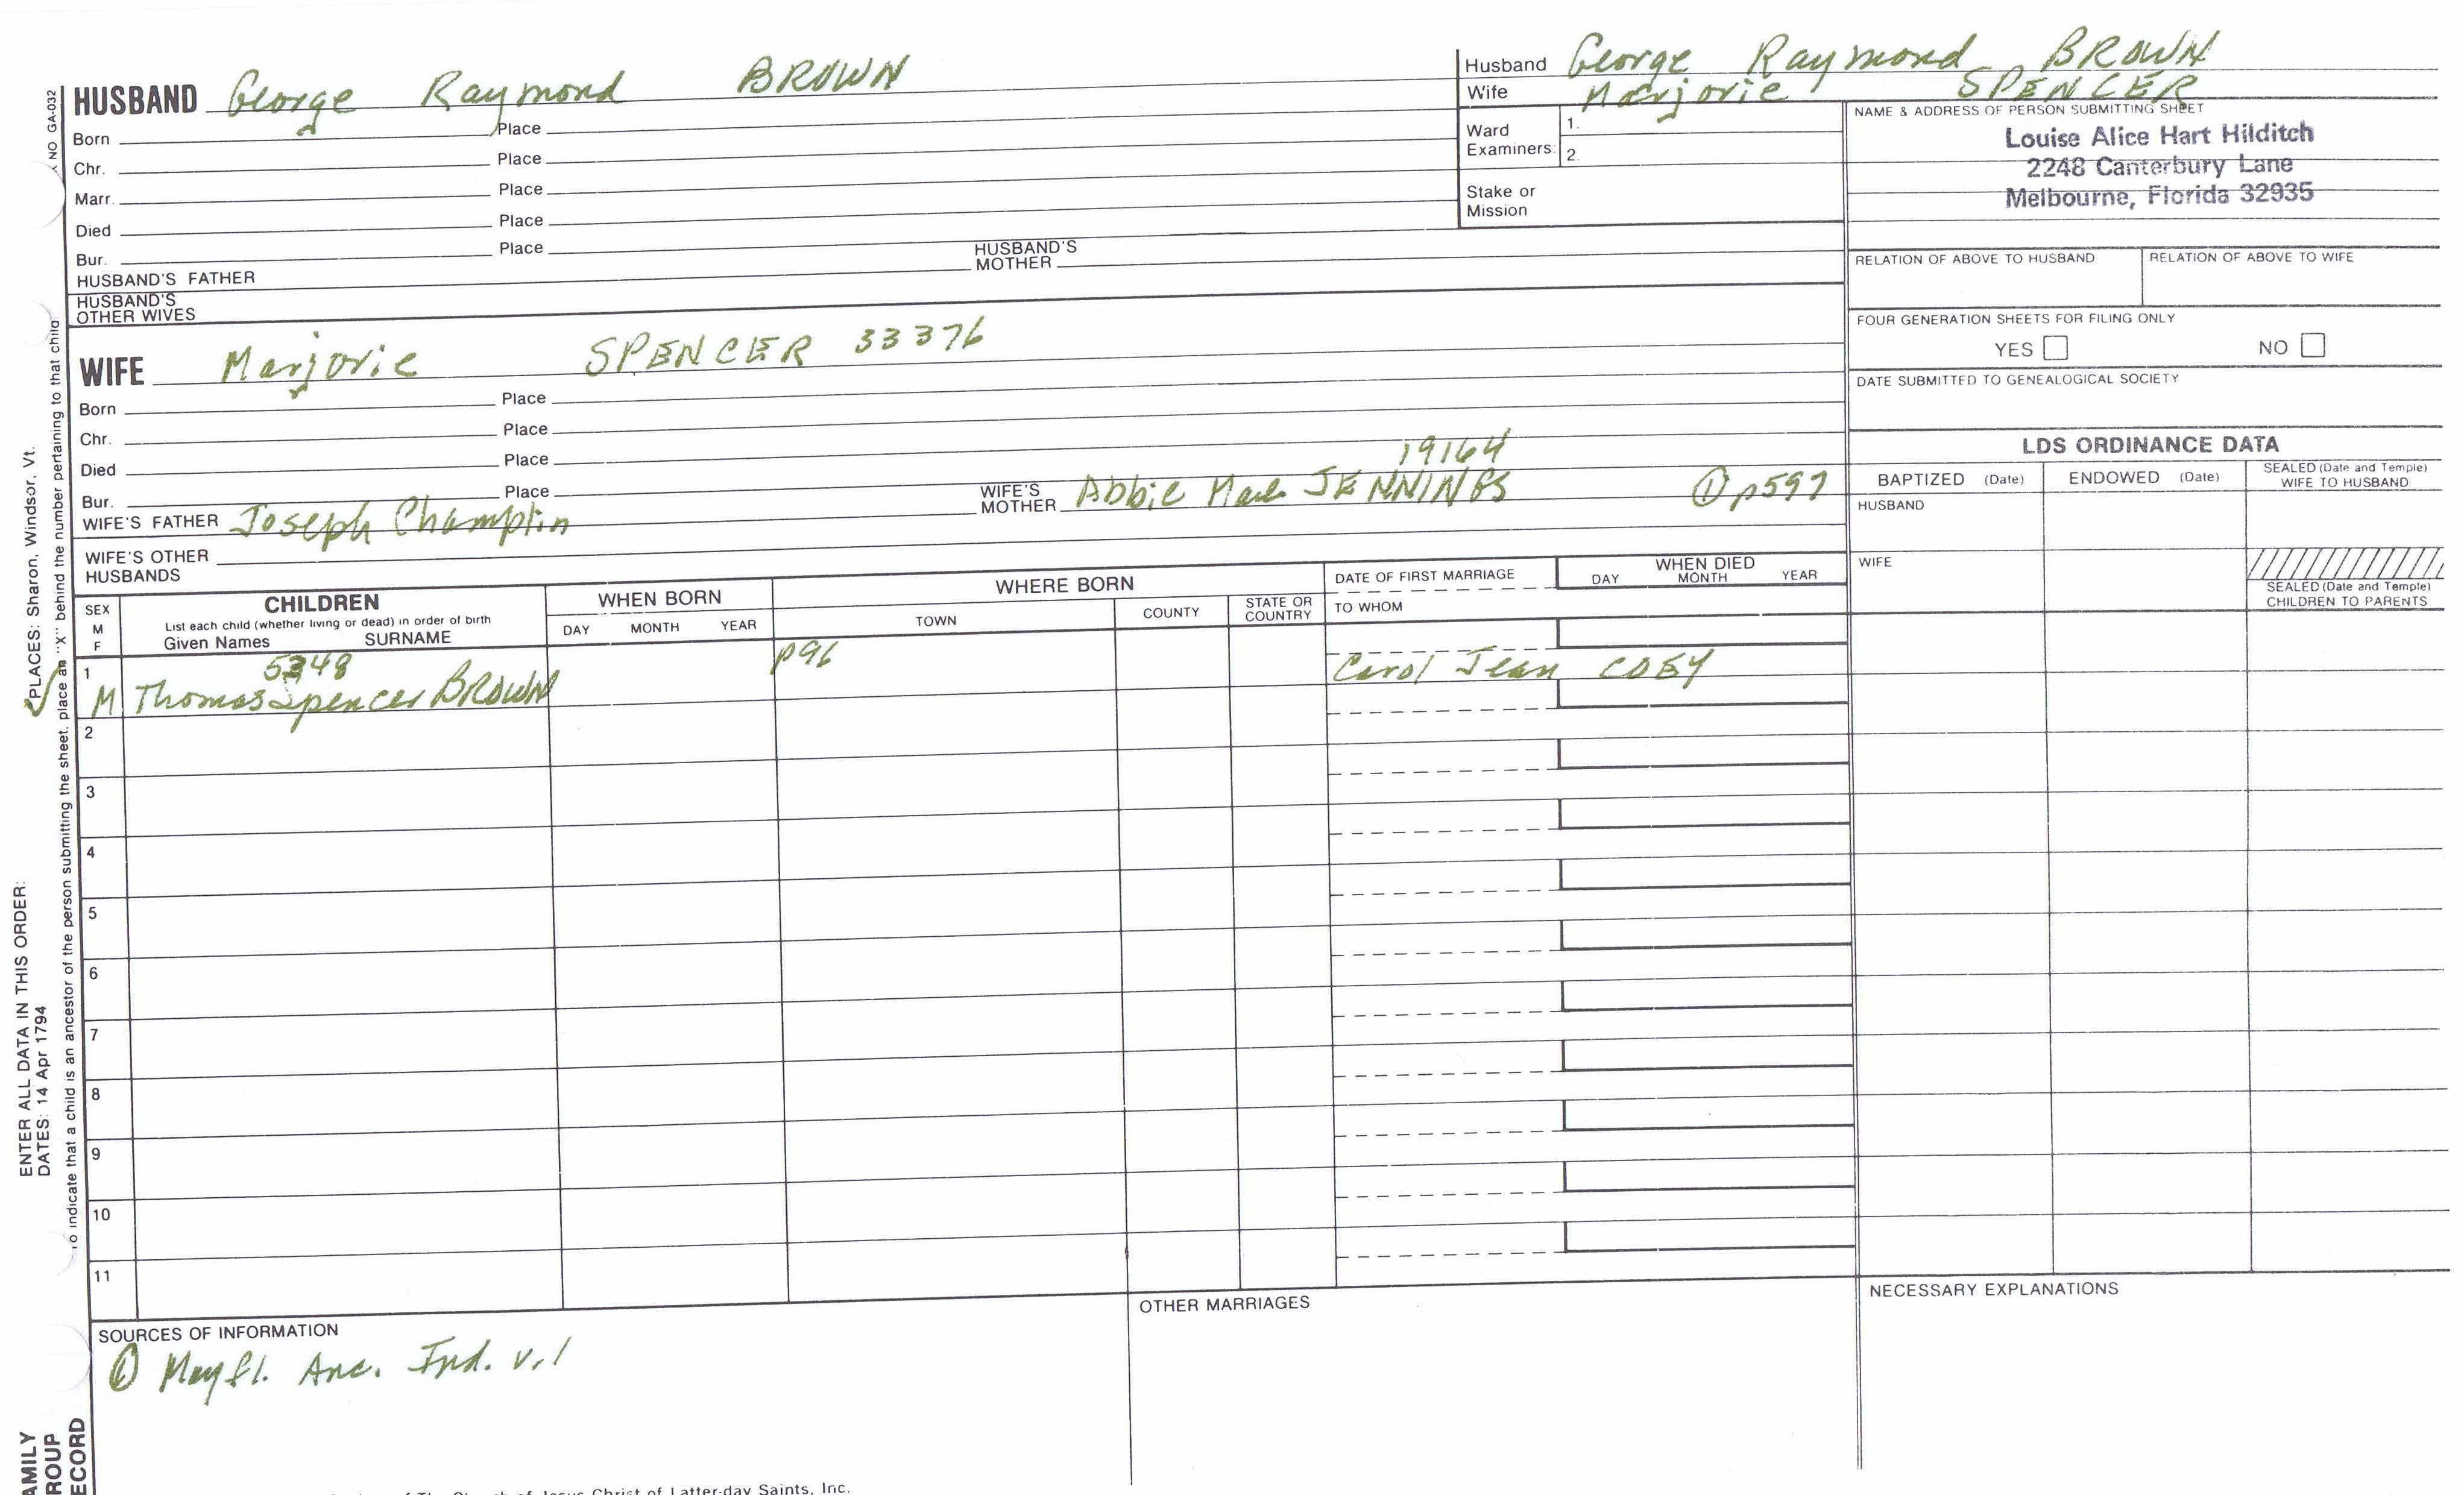 HUSBAND George Raymond BROWN
Born Place
Chr. Place
Marr. Place
Died Place
Bur. Place
HUSBAND'S FATHER HUSBAND'S MOTHER
HUSBAND'S OTHER WIVES
Husband George Raymond BROWN
Wife Marjorie SPENCER
Ward Examiners: 1.
2.
Stake or Mission
NAME & ADDRESS OF PERSON SUBMITTING SHEET
Louise Alice Hart Hilditch
2248 Canterbury Lane
Melbourne, Florida 32935
RELATION OF ABOVE TO HUSBAND RELATION OF ABOVE TO WIFE
FOUR GENERATION SHEETS FOR FILING ONLY
YES NO
DATE SUBMITTED TO GENEALOGICAL SOCIETY
WIFE Marjorie SPENCER 33376
Born Place
Chr. Place
Died Place
Bur. Place
19164
WIFE'S FATHER Joseph Champlin WIFE'S MOTHER Abbie JENNINGS ① p597
WIFE'S OTHER HUSBANDS
LDS ORDINANCE DATA
BAPTIZED (Date) ENDOWED (Date) SEALED (Date and Temple) WIFE TO HUSBAND
HUSBAND
WIFE
SEALED (Date and Temple) CHILDREN TO PARENTS
SEX M F
CHILDREN
List each child (whether living or dead) in order of birth
Given Names SURNAME
WHEN BORN
DAY MONTH YEAR
WHERE BORN
TOWN COUNTY STATE OR COUNTRY
DATE OF FIRST MARRIAGE
TO WHOM
WHEN DIED
DAY MONTH YEAR
1 5348 p96
M Thomas Spencer BROWN Carol Jean COEY
2
3
4
5
6
7
8
9
10
11
SOURCES OF INFORMATION
① Mayfl. Anc. Ind. v.1
OTHER MARRIAGES
NECESSARY EXPLANATIONS
NO GA-032
PLACES: Sharon, Windsor, Vt.
ENTER ALL DATA IN THIS ORDER:
DATES: 14 Apr 1794
To indicate that a child is an ancestor of the person submitting the sheet, place an "X" behind the number pertaining to that child
AMILY
ROUP
ECORD
of The Church of Jesus Christ of Latter-day Saints, Inc.